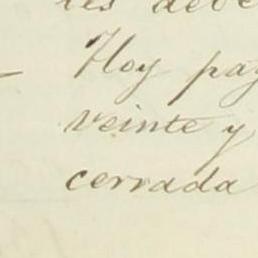 les debe
Hoy pag
veinte y
cerrada